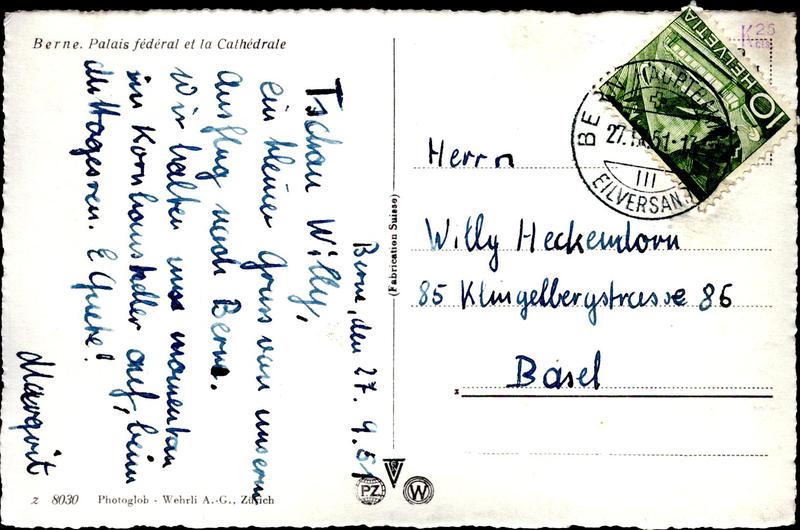 Berne. Palais fédéral et la Cathédrale
Berne, den 27. 9. 51
Tschau Willy,
ein kleiner Gruss von unserm
Ausflug nach Berne.
Wir halten uns momentan
im Kornhauskeller auf, beim
Mittagessen. E Guete!
Margrit
z 8030 Photoglob - Wehrli A.-G., Zürich
(Fabrication Suisse)
PZ
W
HELVETIA
10
K25
BERN HAUPTBAHN
27. 51-17
III
EILVERSAN
Herrn
Willy Heckendorn
85 Klingelbergstrasse 86
Basel